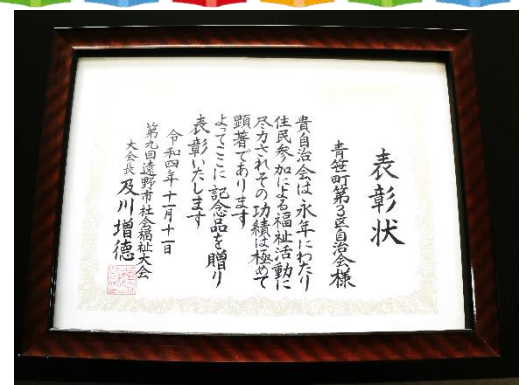 表彰状
青笹町第3区自治会様
貴自治会は永年にわたり
住民参加による福祉活動に
尽力されその功績は極めて
顕著であります
よってここに記念品を贈り
表彰いたします
令和四年十一月十一日
第九回遠野市社会福祉大会
大会長 及川増德